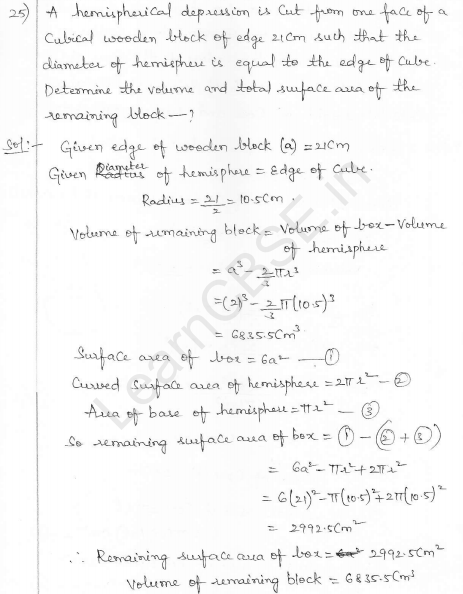 25) A hemispherical depression is cut from one face of a
Cubical wooden block of edge 21Cm such that the
diameter of hemisphere is equal to the edge of Cube.
Determine the volume and total surface area of the
remaining block —?
Sol:- Given edge of wooden block (a) = 21Cm
Given Diameter of hemisphere = Edge of Cube.
Radius = 21/2 = 10.5Cm.
Volume of remaining block = Volume of box - Volume
of hemisphere
= a³ - 2/3 πr³
= (21)³ - 2/3 π(10.5)³
= 6835.5Cm³
Surface area of box = 6a² — ①
Curved Surface area of hemisphere = 2πr² - ②
Area of base of hemisphere = πr² — ③
So remaining surface area of box = ① - (② + ③)
= 6a² - πr² + 2πr²
= 6(21)² - π(10.5)² + 2π(10.5)²
= 2992.5Cm²
∴ Remaining surface area of box = 2992.5Cm²
Volume of remaining block = 6835.5Cm³
LearnCBSE.in